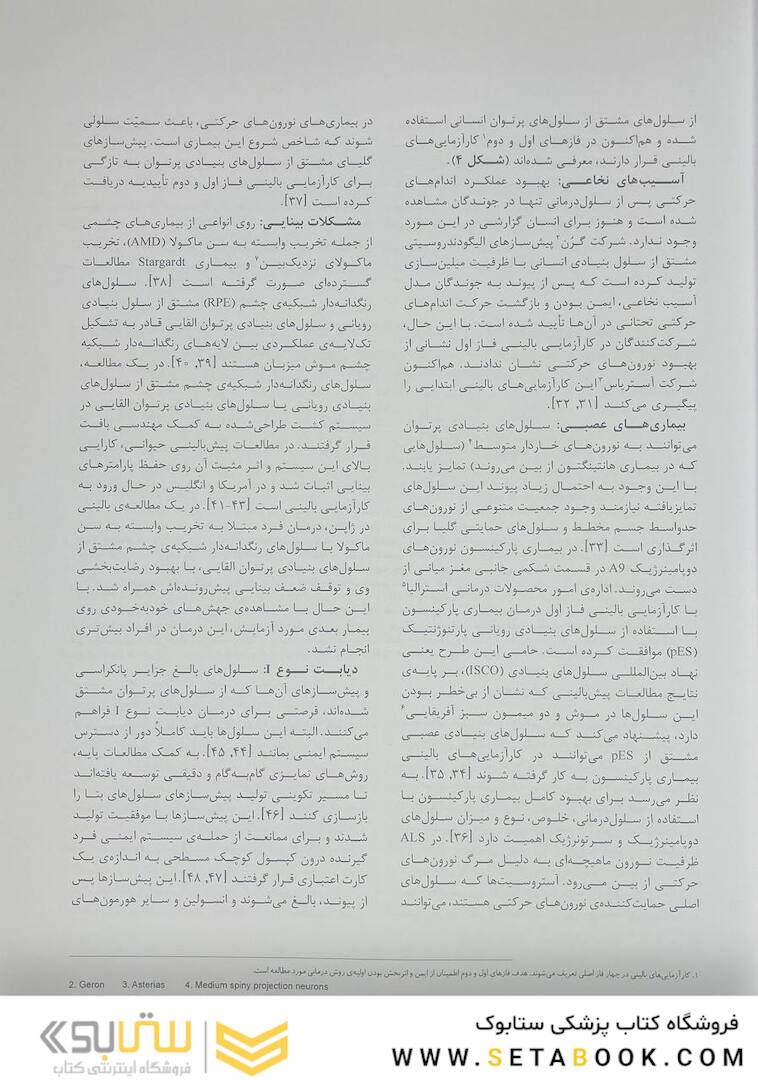 از سلول‌های مشتق از سلول‌های پرتوان انسانی استفاده
شده و هم‌اکنون در فازهای اول و دوم۱ کارآزمایی‌های
بالینی قرار دارند، معرفی شده‌اند (شکل ۴).
آسیب‌های نخاعی: بهبود عملکرد اندام‌های
حرکتی پس از سلول‌درمانی تنها در جوندگان مشاهده
شده است و هنوز برای انسان گزارشی در این مورد
وجود ندارد. شرکت گرُن۲ پیش‌سازهای الیگودندروسیتی
مشتق از سلول بنیادی انسانی با ظرفیت میلین‌سازی
تولید کرده است که پس از پیوند به جوندگان مدل
آسیب نخاعی، ایمن بودن و بازگشت حرکت اندام‌های
حرکتی تحتانی در آن‌ها تأیید شده است. با این حال،
شرکت‌کنندگان در کارآزمایی بالینی فاز اول نشانی از
بهبود نورون‌های حرکتی نشان ندادند. هم‌اکنون
شرکت آستریاس۳ این کارآزمایی‌های بالینی ابتدایی را
پیگیری می‌کند [۳۱, ۳۲].
بیماری‌های عصبی: سلول‌های بنیادی پرتوان
می‌توانند به نورون‌های خاردار متوسط۴ (سلول‌هایی
که در بیماری هانتینگتون از بین می‌روند) تمایز یابند.
با این وجود به احتمال زیاد پیوند این سلول‌های
تمایزیافته نیازمند وجود جمعیت متنوعی از نورون‌های
حدواسط جسم مخطط و سلول‌های حمایتی گلیا برای
اثرگذاری است [۳۳]. در بیماری پارکینسون نورون‌های
دوپامینرژیک A9 در قسمت شکمی جانبی مغز میانی از
دست می‌روند. اداره‌ی امور محصولات درمانی استرالیا۵
با کارآزمایی بالینی فاز اول درمان بیماری پارکینسون
با استفاده از سلول‌های بنیادی رویانی پارتنوژنتیک
(pES) موافقت کرده است. حامی این طرح یعنی
نهاد بین‌المللی سلول‌های بنیادی (ISCO)، بر پایه‌ی
نتایج مطالعات پیش‌بالینی که نشان از بی‌خطر بودن
این سلول‌ها در موش و دو میمون سبز آفریقایی۶
دارد، پیشنهاد می‌کند که سلول‌های بنیادی عصبی
مشتق از pES می‌توانند در کارآزمایی‌های بالینی
بیماری پارکینسون به کار گرفته شوند [۳۴, ۳۵]. به
نظر می‌رسد برای بهبود کامل بیماری پارکینسون با
استفاده از سلول‌درمانی، خلوص، نوع و میزان سلول‌های
دوپامینرژیک و سرتونرژیک اهمیت دارد [۳۶]. در ALS
ظرفیت نورون ماهیچه‌ای به دلیل مرگ نورون‌های
حرکتی از بین می‌رود. آستروسیت‌ها که سلول‌های
اصلی حمایت‌کننده‌ی نورون‌های حرکتی هستند، می‌توانند
در بیماری‌های نورون‌های حرکتی، باعث سمیّت سلولی
شوند که شاخص شروع این بیماری است. پیش‌سازهای
گلیای مشتق از سلول‌های بنیادی پرتوان به تازگی
برای کارآزمایی بالینی فاز اول و دوم تأییدیه دریافت
کرده است [۳۷].
مشکلات بینایی: روی انواعی از بیماری‌های چشمی
از جمله تخریب وابسته به سن ماکولا (AMD)، تخریب
ماکولای نزدیک‌بین۷ و بیماری Stargardt مطالعات
گسترده‌ای صورت گرفته است [۳۸]. سلول‌های
رنگدانه‌دار شبکیه‌ی چشم (RPE) مشتق از سلول بنیادی
رویانی و سلول‌های بنیادی پرتوان القایی قادر به تشکیل
تک‌لایه‌ی عملکردی بین لایه‌های رنگدانه‌دار شبکیه
چشم موش میزبان هستند [۳۹, ۴۰]. در یک مطالعه،
سلول‌های رنگدانه‌دار شبکیه‌ی چشم مشتق از سلول‌های
بنیادی رویانی یا سلول‌های بنیادی پرتوان القایی در
سیستم کشت طراحی‌شده به کمک مهندسی بافت
قرار گرفتند. در مطالعات پیش‌بالینی حیوانی، کارایی
بالای این سیستم و اثر مثبت آن روی حفظ پارامترهای
بینایی اثبات شد و در آمریکا و انگلیس در حال ورود به
کارآزمایی بالینی است [۴۳-۴۱]. در یک مطالعه‌ی بالینی
در ژاپن، درمان فرد مبتلا به تخریب وابسته به سن
ماکولا با سلول‌های رنگدانه‌دار شبکیه‌ی چشم مشتق از
سلول‌های بنیادی پرتوان القایی، با بهبود رضایت‌بخشی
وی و توقف ضعف بینایی پیش‌رونده‌اش همراه شد. با
این حال با مشاهده‌ی جهش‌های خودبه‌خودی روی
بیمار بعدی مورد آزمایش، این درمان در افراد بیش‌تری
انجام نشد.
دیابت نوع I: سلول‌های بالغ جزایر پانکراسی
و پیش‌سازهای آن‌ها که از سلول‌های پرتوان مشتق
شده‌اند، فرصتی برای درمان دیابت نوع I فراهم
می‌کنند. البته این سلول‌ها باید کاملاً دور از دسترس
سیستم ایمنی بمانند [۴۴, ۴۵]. به کمک مطالعات پایه،
روش‌های تمایزی گام‌به‌گام و دقیقی توسعه یافته‌اند
تا مسیر تکوینی تولید پیش‌سازهای سلول‌های بتا را
بازسازی کنند [۴۶]. این پیش‌سازها با موفقیت تولید
شدند و برای ممانعت از حمله‌ی سیستم ایمنی فرد
گیرنده درون کپسول کوچک مسطحی به اندازه‌ی یک
کارت اعتباری قرار گرفتند [۴۷, ۴۸]. این پیش‌سازها پس
از پیوند، بالغ می‌شوند و انسولین و سایر هورمون‌های
۱. کارآزمایی‌های بالینی در چهار فاز اصلی تعریف می‌شوند. هدف فازهای اول و دوم اطمینان از ایمن و اثربخش بودن اولیه‌ی روش درمانی مورد مطالعه است.
2. Geron 3. Asterias 4. Medium spiny projection neurons
فروشگاه کتاب پزشکی ستابوک
WWW.SETABOOK.COM
ستابوک
فروشگاه اینترنتی کتاب